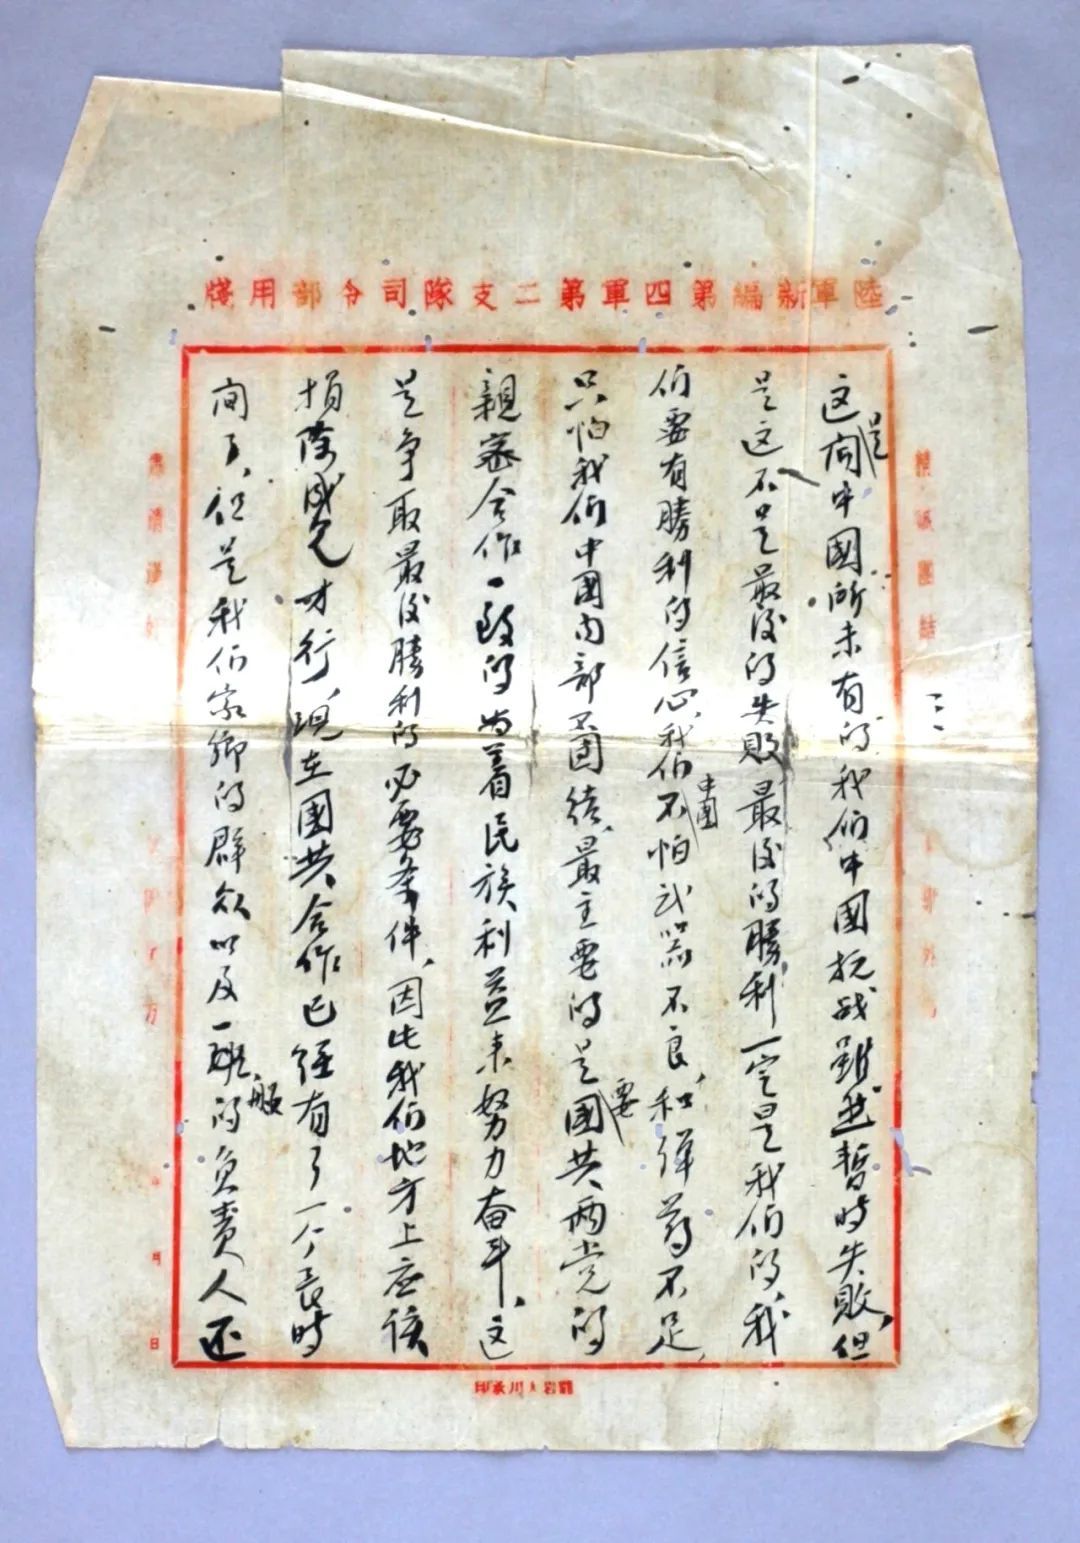 陸軍新編第四軍第二支隊司令部用牋
精誠團結
三
这是向中國所未有的我们中國抗战雖然暫时失败、但
是这不是最後的失败最後的勝利一定是我们的、我
们要有勝利的信心、我们中國不怕武器不良、和弹药不足、
只怕我们中國内部不团结、最主要的是要國共两党的
親密合作一致的为着民族利益来努力奋斗、这
是争取最後勝利的必要条件、因此我们地方上应该
捐除成見才行、现在國共合作已经有了一个長时
间了、但是我们家鄉的群众以及一般的负责人还
月
日